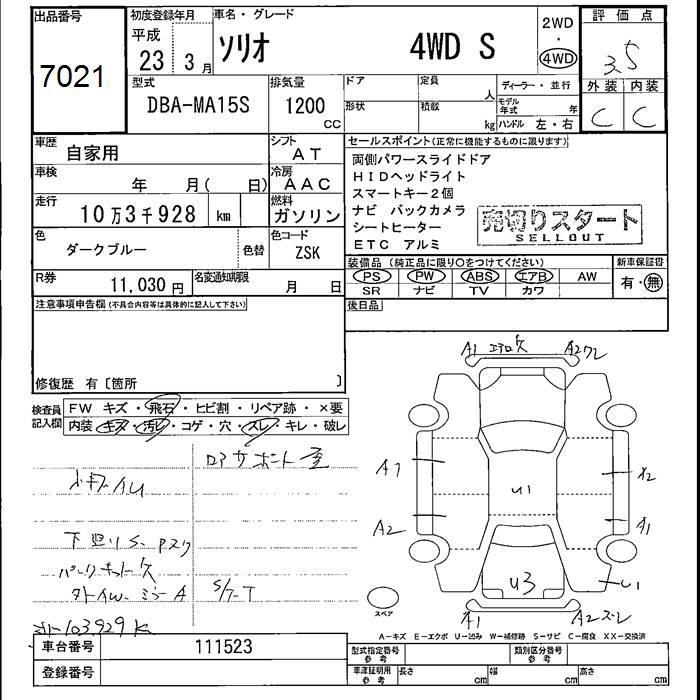 出品番号
7021
初度登録年月
平成
23 3 月
車名・グレード
ソリオ 4WD S
2WD
・
4WD
評価点
3.5
外装 内装
C C
型式
DBA-MA15S
排気量
1200
cc
ドア
定員
人
形状
積載
kg
ディーラー・並行
モデル年式 年
ハンドル 左・右
車歴
自家用
シフト
AT
車検
年 月( 日)
冷房
AAC
走行
10万3千928 km
燃料
ガソリン
色
ダークブルー
色替
色コード
ZSK
R券
11,030 円
名変通知期限
月 日
セールスポイント(正常に機能するものに限ります)
両側パワースライドドア
HIDヘッドライト
スマートキー2個
ナビ バックカメラ
シートヒーター
ETC アルミ
売切りスタート
SELLOUT
装備品(純正品に限り○をつけてください)
新車保証書
PS PW ABS エアB AW
SR ナビ TV カワ
有・無
後日品
注意事項申告欄(不具合内容等は具体的に記入して下さい)
修復歴 有〔箇所 〕
検査員
記入欄
FW キズ・飛石・ヒビ割・リペア跡・×要
内装 キズ・汚レ・コゲ・穴・スレ・キレ・破レ
A1
A1
A2
U1
A2
A1
U3
U1
A1
A2
スペア
A-キズ E-エクボ U-凹み W-補修跡 S-サビ C-腐食 XX-交換済
車台番号
111523
登録番号
型式指定番号
参考
類別区分番号
参考
車庫証明用
参考
長さ cm
幅 cm
高さ cm